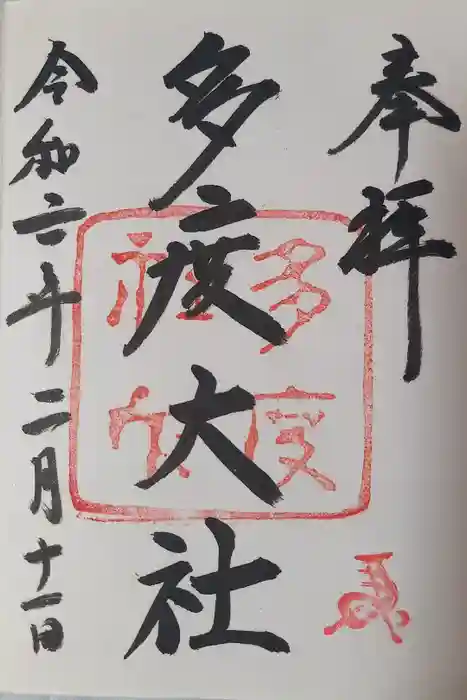 奉拝
多度大社
令和三年二月十一日
多度
社印